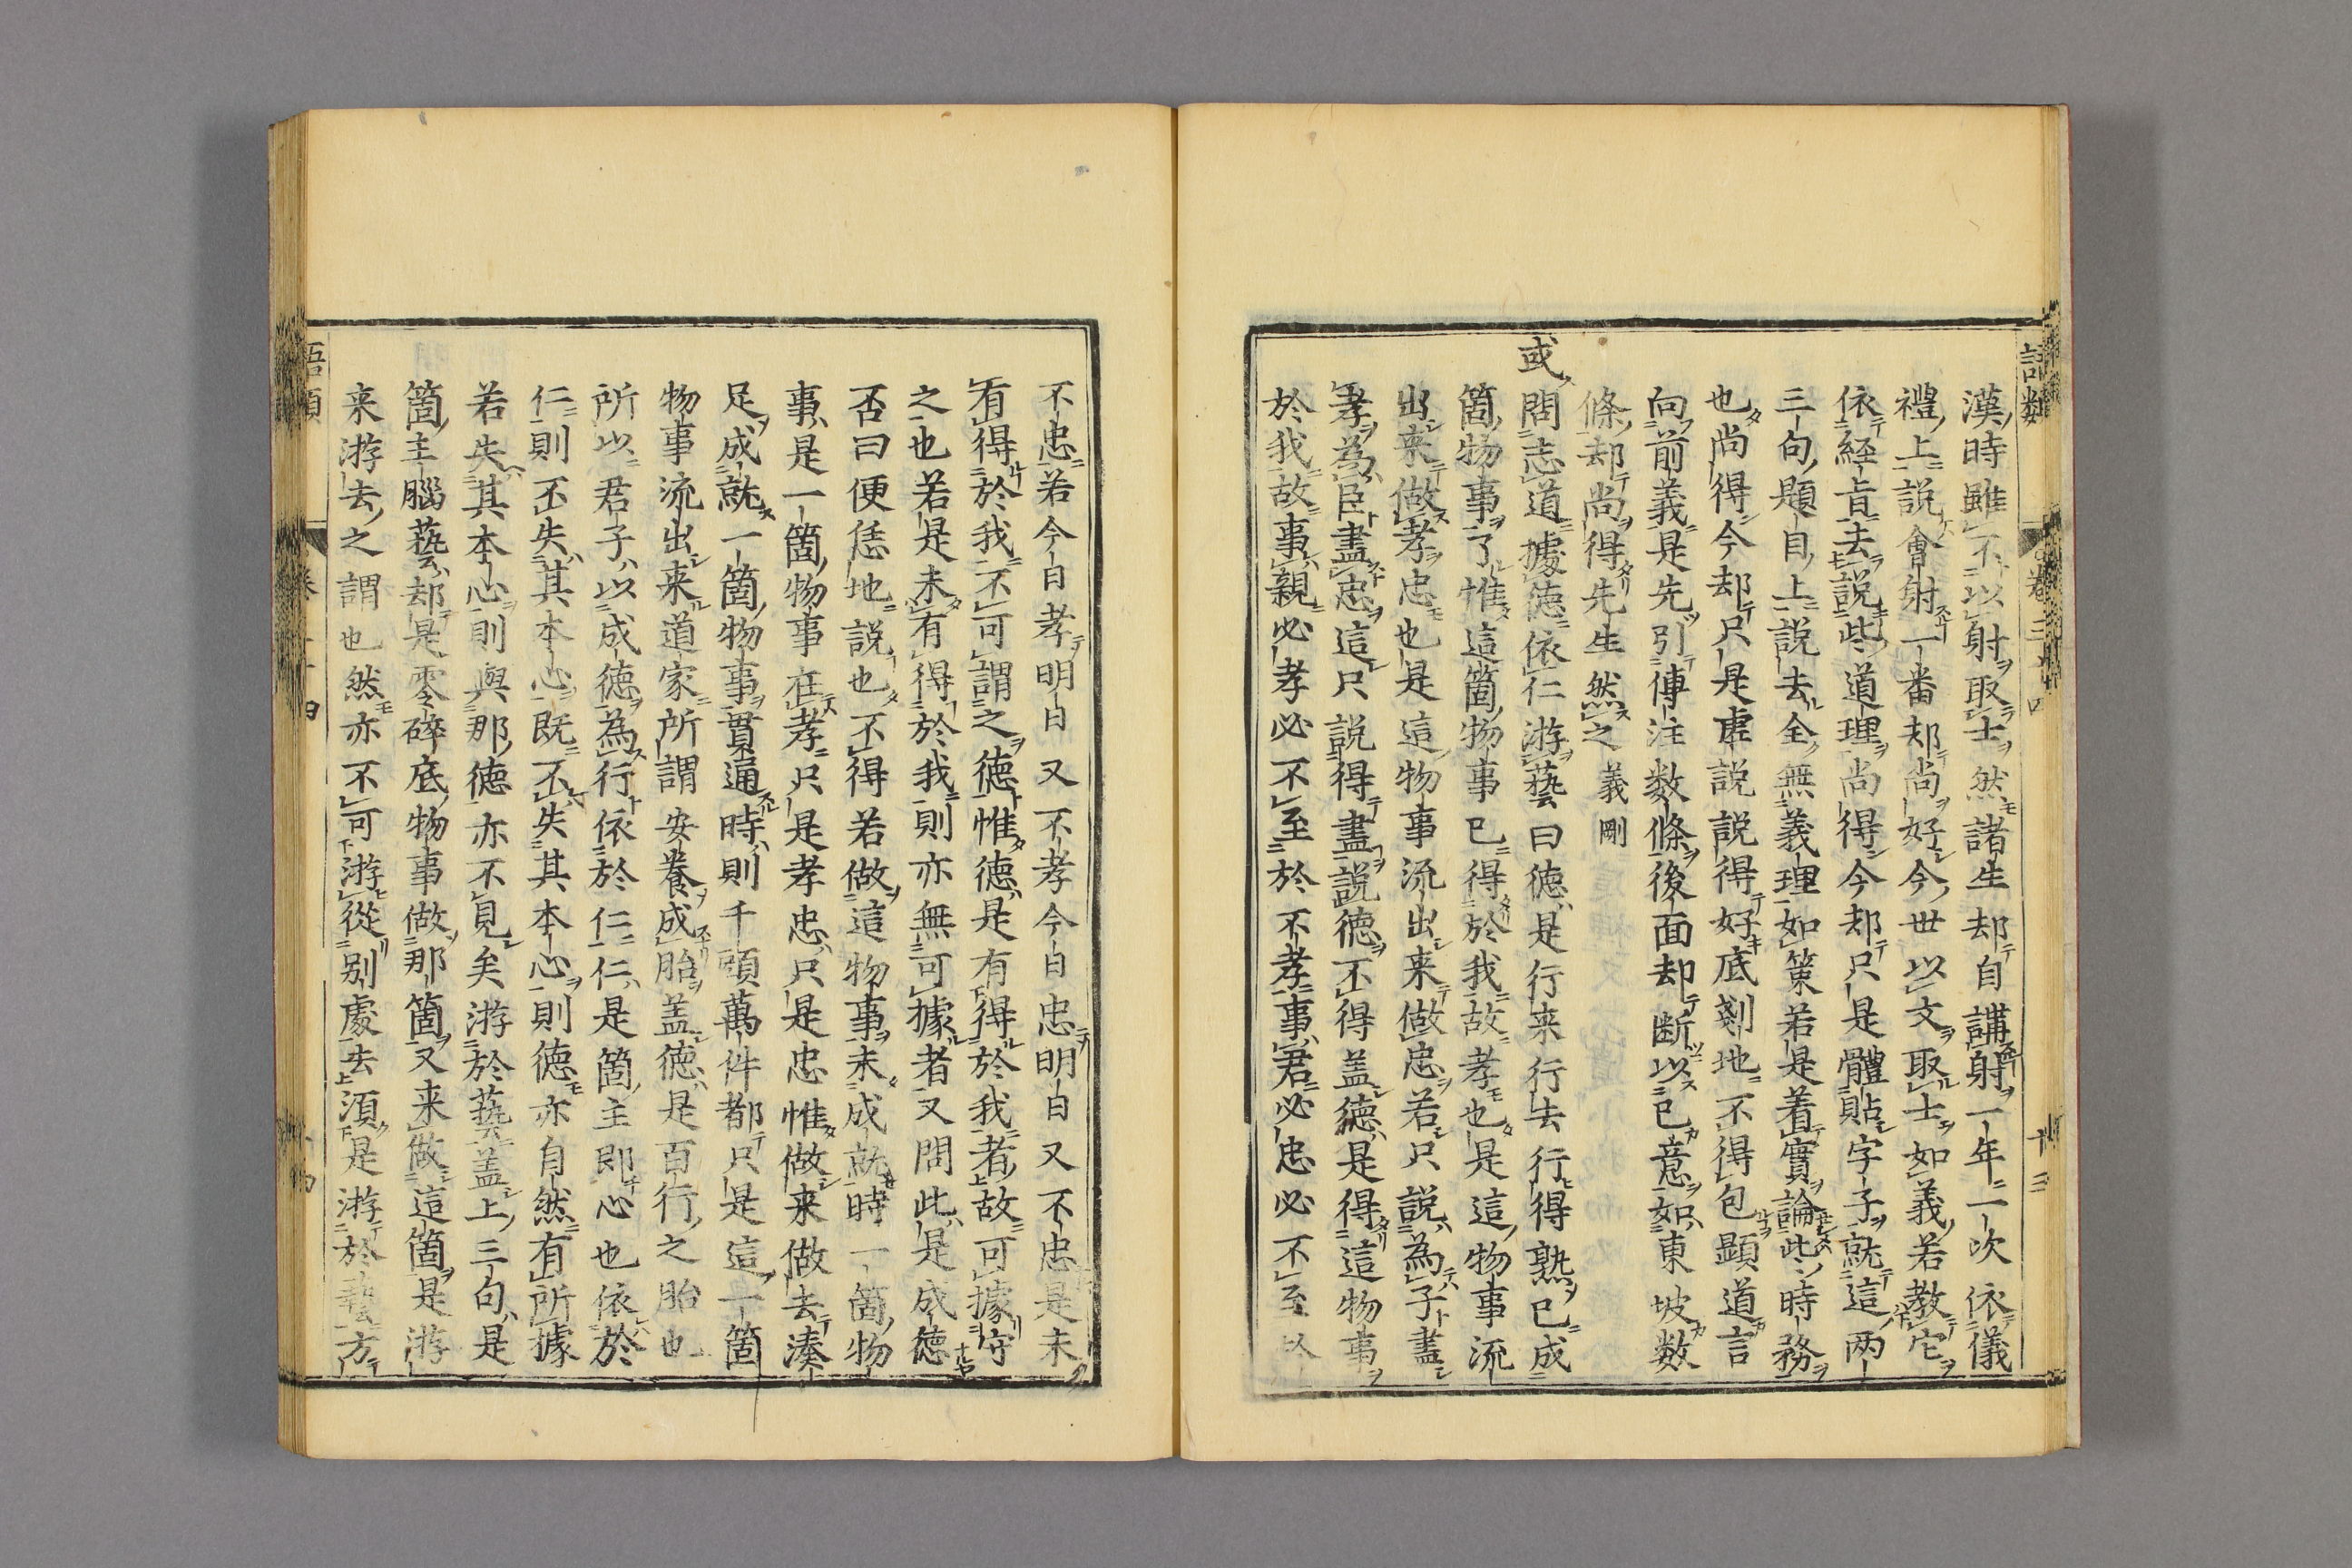 漢時雖不以射取士然諸生却自講射一年一次依儀
禮上説會射一番却尚好今世以文取士如義若教它
依経旨去説些道理尚得今却只是體貼字子就這両
三句題目上説去全無義理如策若是着實論些時務
也尚得今却只是虚説説得好底剗地不得包顕道言
向前義是先引傳注数條後面却断以已意如東坡数
條却尚得先生然之 義剛
或問志道據徳依仁游藝曰徳是行来行去行得熟已成
箇物事了惟這箇物事已得於我故孝也是這物事流
出来做孝忠也是這物事流出来做忠若只説為子盡
孝為臣盡忠這只説得盡説徳不得盖徳是得這物事
於我故事親必孝必不至於不孝事君必忠必不至以
不忠若今日孝明日又不孝今日忠明日又不忠是未
有得於我不可謂之徳惟徳是有得於我者故可據守
之也若是未有得於我則亦無可據者又問此是成徳
否曰便恁地説也不得若做這物事未成就時一箇物
事是一箇物事在孝只是孝忠只是忠惟做来做去湊
足成就一箇物事貫通時則千頭萬件都只是這一箇
物事流出来道家所謂安養成胎盖徳是百行之胎也
所以君子以成徳為行依於仁仁是箇主即心也依於
仁則不失其本心既不失其本心則徳亦自然有所據
若失其本心則與那徳亦不見矣游於藝盖上三句是
箇主腦藝却是零碎底物事做那箇又来做這箇是游
来游去之謂也然亦不可游從别處去湏是游於藝方